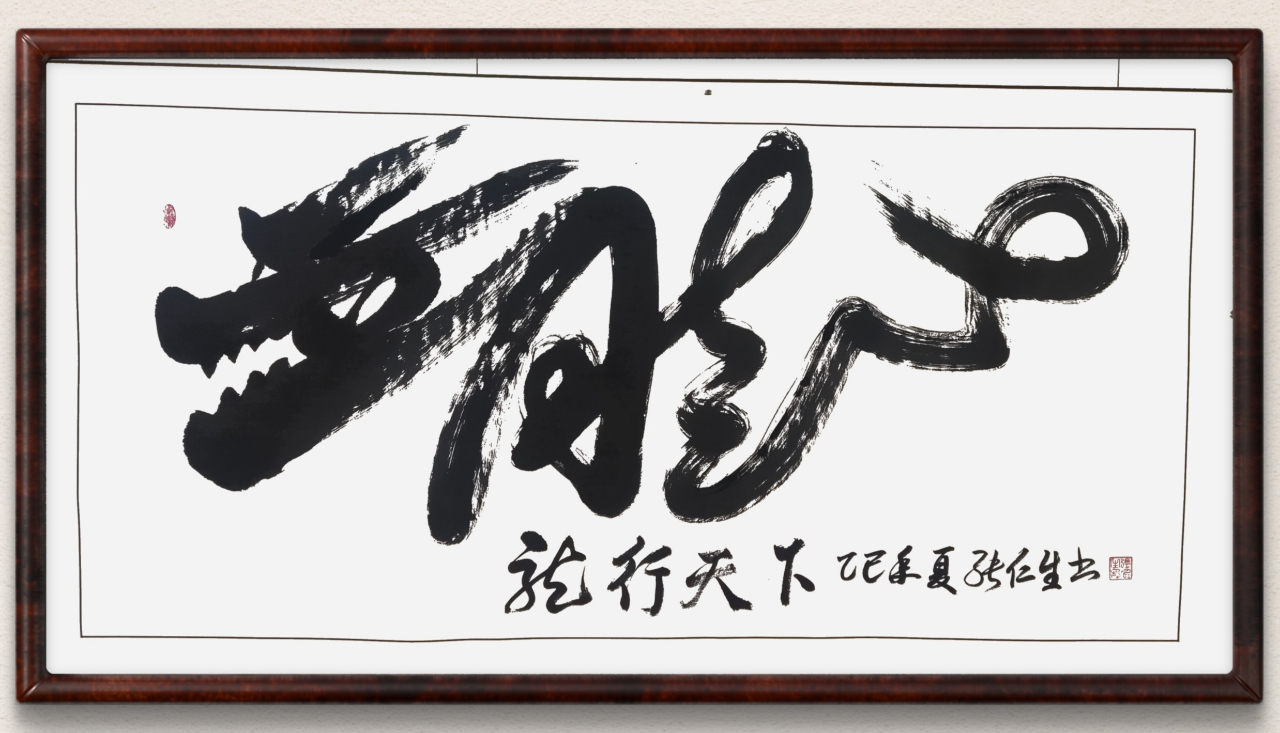 龍
龍行天下 乙巳年夏 张仁生书